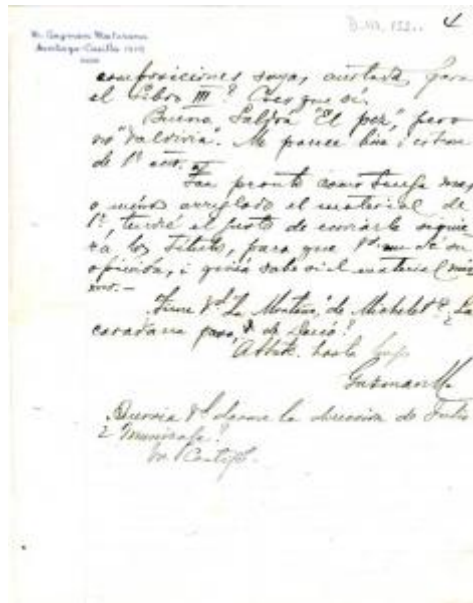 M. Guzmán Maturana
Santiago-Casilla
4
composiciones suyas, anotada para
el Libro III? Creo que sí.
Bueno. Saldrá "El pez", pero
no "Valdivia". Me parece bien i
de 1er
Tan pronto como tenga mas
o ménos arreglado el material de
1º tendré el gusto de enviarle siquie-
ra los títulos, para que Vd. me dé su
opinión, i quizá el material
Tiene Vd. "La Montaña", de Michelet? "La
caravana pasa", de Darío?
hasta luego
Guzmán M.
Querría Vd. darme la dirección de Julio